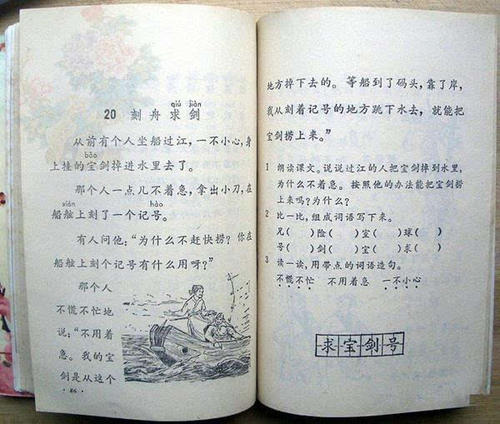 qiú jiàn
20 刻舟求剑
从前有个人坐船过江，一不小心，身
bǎo
上挂的宝剑掉进水里去了。
那个人一点儿不着急，拿出小刀，在
xián hào
船舷上刻了一个记号。
有人问他：“为什么不赶快捞？你在
船舷上刻个记号有什么用呀？”
那个人
不慌不忙地
说：“不用着
急。我的宝
剑是从这个
·86·
地方掉下去的。等船到了码头，靠了岸，
我从刻着记号的地方跳下水去，就能把
宝剑捞上来。”
1 朗读课文。说说过江的人把宝剑掉到水里，
为什么不着急。按照他的办法能把宝剑捞
上来吗？为什么？
2 比一比，组成词语写下来。
兄（ ）险（ ）宝（ ）球（ ）
号（ ）剑（ ）室（ ）求（ ）
3 读一读，用带点的词语造句。
不慌不忙 不用着急 一不小心
求宝剑号